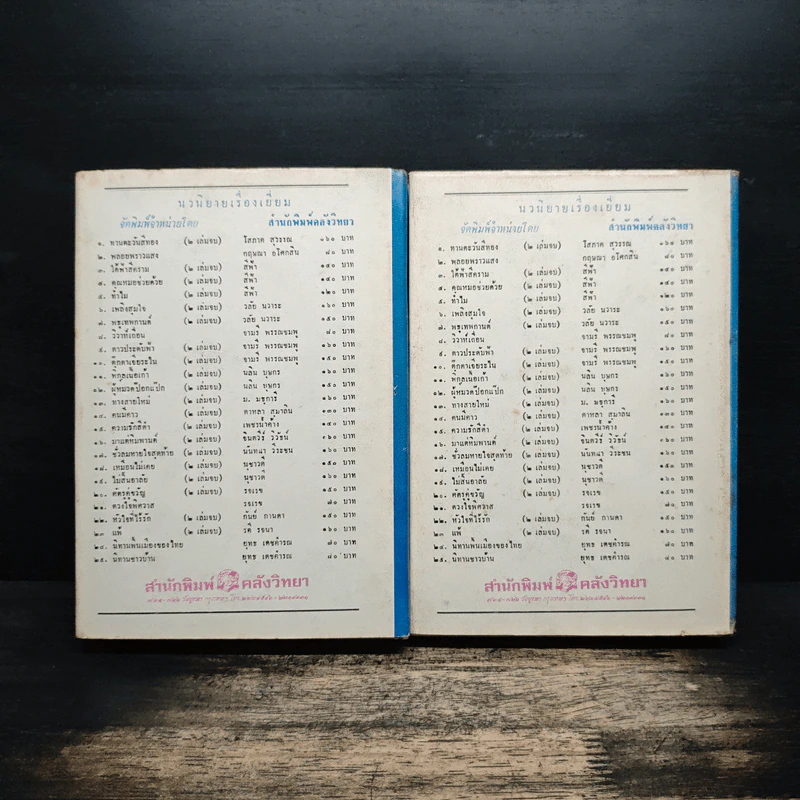 นวนิยายเรื่องเยี่ยม
จัดพิมพ์จำหน่ายโดย สำนักพิมพ์คลังวิทยา
๑. ทานตะวันสีทอง (๒ เล่มจบ) โสภาค สุวรรณ ๑๖๐ บาท
๒. พลอยพราวแสง กฤษณา อโศกสิน ๘๐ บาท
๓. ใต้ฟ้าสีคราม (๒ เล่มจบ) สีฟ้า ๑๕๐ บาท
๔. คุณหมอช่วยด้วย (๒ เล่มจบ) สีฟ้า ๑๔๐ บาท
๕. ทำไม (๒ เล่มจบ) สีฟ้า ๑๒๐ บาท
๖. เพลิงสุมใจ (๒ เล่มจบ) วลัย นวาระ ๑๖๐ บาท
๗. พธูเทพกานต์ (๒ เล่มจบ) วลัย นวาระ ๑๕๐ บาท
๘. วิวาห์เถื่อน จามรี พรรณชมพู ๘๐ บาท
๙. ดาวประดับฟ้า (๒ เล่มจบ) จามรี พรรณชมพู ๑๖๐ บาท
๑๐. ตุ๊กตาเจียระไน (๒ เล่มจบ) จามรี พรรณชมพู ๑๕๐ บาท
๑๑. พิกุลเนื้อเก้า (๒ เล่มจบ) นลิน บุษกร ๑๖๐ บาท
๑๒. ผู้หมวดป๊อกแป๊ก (๒ เล่มจบ) นลิน บุษกร ๑๕๐ บาท
๑๓. ทางสายใหม่ (๒ เล่มจบ) ม. มธุการี ๑๖๐ บาท
๑๔. คนมีคาว (๒ เล่มจบ) ดาหลา สุมาลิน ๑๓๐ บาท
๑๕. ความรักสีดำ (๒ เล่มจบ) เพชรน้ำค้าง ๑๔๐ บาท
๑๖. มาแต่หิมพานต์ (๒ เล่มจบ) จินตวีร์ วิวัธน์ ๑๖๐ บาท
๑๗. ชั่วลมหายใจสุดท้าย (๒ เล่มจบ) นันทนา วีระชน ๑๖๐ บาท
๑๘. เหมือนไม่เคย (๒ เล่มจบ) นุชาวดี ๑๕๐ บาท
๑๙. ไม่สิ้นอาลัย (๒ เล่มจบ) นุชาวดี ๑๖๐ บาท
๒๐. ศัตรูคู่ขวัญ (๒ เล่มจบ) รจเรข ๑๕๐ บาท
๒๑. ดวงใจพิศวาส รจเรข ๗๐ บาท
๒๒. หัวใจที่ไร้รัก (๒ เล่มจบ) กันย์ กานดา ๑๕๐ บาท
๒๓. แพ้ (๒ เล่มจบ) รติ รจนา ๑๖๐ บาท
๒๔. นิทานพื้นเมืองของไทย ยุทธ เดชคำรณ ๗๐ บาท
๒๕. นิทานชาวบ้าน ยุทธ เดชคำรณ ๘๐ บาท
สำนักพิมพ์ คลังวิทยา
นวนิยายเรื่องเยี่ยม
จัดพิมพ์จำหน่ายโดย สำนักพิมพ์คลังวิทยา
๑. ทานตะวันสีทอง (๒ เล่มจบ) โสภาค สุวรรณ ๑๖๐ บาท
๒. พลอยพราวแสง กฤษณา อโศกสิน ๘๐ บาท
๓. ใต้ฟ้าสีคราม (๒ เล่มจบ) สีฟ้า ๑๕๐ บาท
๔. คุณหมอช่วยด้วย (๒ เล่มจบ) สีฟ้า ๑๔๐ บาท
๕. ทำไม (๒ เล่มจบ) สีฟ้า ๑๒๐ บาท
๖. เพลิงสุมใจ (๒ เล่มจบ) วลัย นวาระ ๑๖๐ บาท
๗. พธูเทพกานต์ (๒ เล่มจบ) วลัย นวาระ ๑๕๐ บาท
๘. วิวาห์เถื่อน จามรี พรรณชมพู ๘๐ บาท
๙. ดาวประดับฟ้า (๒ เล่มจบ) จามรี พรรณชมพู ๑๖๐ บาท
๑๐. ตุ๊กตาเจียระไน (๒ เล่มจบ) จามรี พรรณชมพู ๑๕๐ บาท
๑๑. พิกุลเนื้อเก้า (๒ เล่มจบ) นลิน บุษกร ๑๖๐ บาท
๑๒. ผู้หมวดป๊อกแป๊ก (๒ เล่มจบ) นลิน บุษกร ๑๕๐ บาท
๑๓. ทางสายใหม่ (๒ เล่มจบ) ม. มธุการี ๑๖๐ บาท
๑๔. คนมีคาว (๒ เล่มจบ) ดาหลา สุมาลิน ๑๓๐ บาท
๑๕. ความรักสีดำ (๒ เล่มจบ) เพชรน้ำค้าง ๑๔๐ บาท
๑๖. มาแต่หิมพานต์ (๒ เล่มจบ) จินตวีร์ วิวัธน์ ๑๖๐ บาท
๑๗. ชั่วลมหายใจสุดท้าย (๒ เล่มจบ) นันทนา วีระชน ๑๖๐ บาท
๑๘. เหมือนไม่เคย (๒ เล่มจบ) นุชาวดี ๑๕๐ บาท
๑๙. ไม่สิ้นอาลัย (๒ เล่มจบ) นุชาวดี ๑๖๐ บาท
๒๐. ศัตรูคู่ขวัญ (๒ เล่มจบ) รจเรข ๑๕๐ บาท
๒๑. ดวงใจพิศวาส รจเรข ๗๐ บาท
๒๒. หัวใจที่ไร้รัก (๒ เล่มจบ) กันย์ กานดา ๑๕๐ บาท
๒๓. แพ้ (๒ เล่มจบ) รติ รจนา ๑๖๐ บาท
๒๔. นิทานพื้นเมืองของไทย ยุทธ เดชคำรณ ๗๐ บาท
๒๕. นิทานชาวบ้าน ยุทธ เดชคำรณ ๘๐ บาท
สำนักพิมพ์ คลังวิทยา